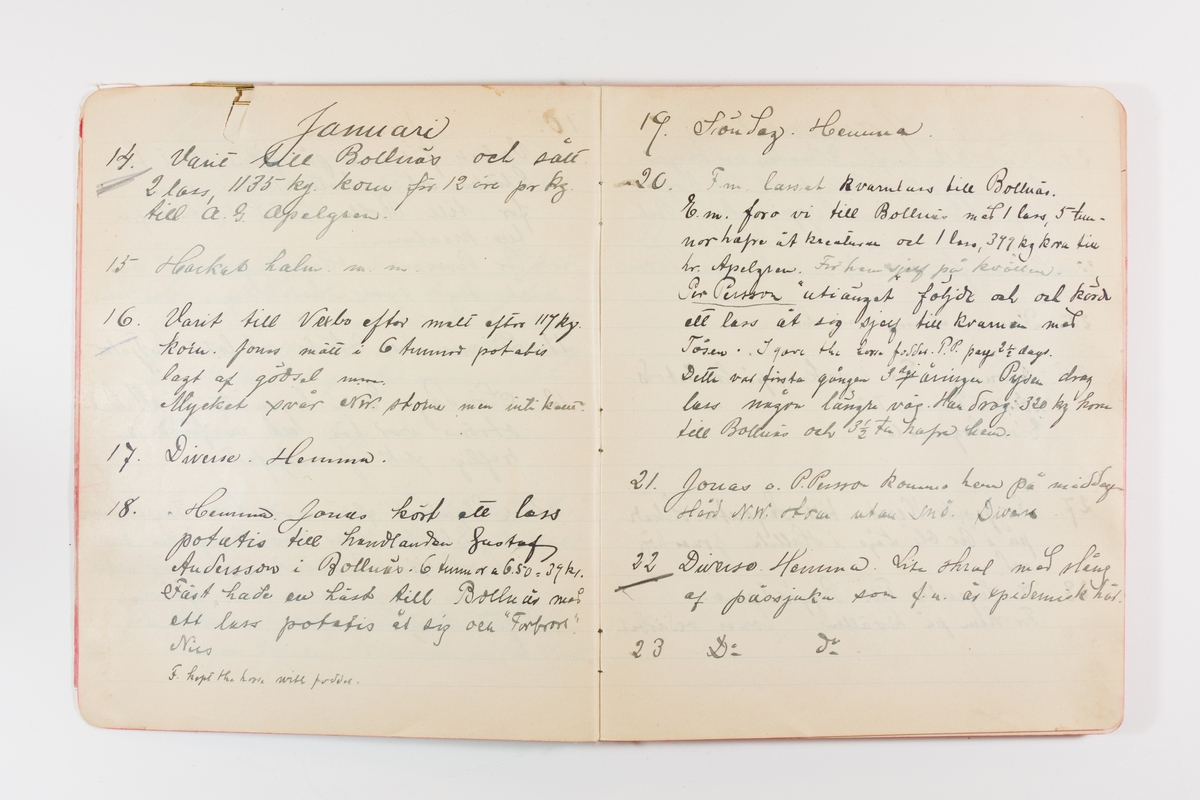 Januari
14. Varit till Bollnäs och sått
2 lass, 1135 kg. korn för 12 öre pr kg.
till A. G. Apelgren.
15 Hackat halm. m. m.
16. Varit till Vexbo efter malt efter 117 kg.
korn. Jonas mätt i 6 tunnor potatis
lagt af gödsel mm.
Mycket svår NW. storm men intet kant.
17. Diverse. Hemma.
18. Hemma. Jonas kört ett lass
potatis till handlanden Gustaf
Andersson i Bollnäs. 6 tunnor a 6.50 = 39 kr.
Fäst hade en häst till Bollnäs med
ett lass potatis åt sig och "Forbrors"
Nils
F. kept the horse with fodder.
19. Söndag. Hemma.
20. Fm. lassat kvarnlass till Bollnäs.
E.m. foro vi till Bollnäs med 1 lass, 5 tun-
nor hafre åt kreaturen och 1 lass, 379 kg korn till
hr. Apelgren. For hem sjelf på kvällen.
Per Persson "utiänget" följde och och körde
ett lass åt sig sjelf till kvarnen med
Tösen. I gave the horse fodder. P.P. pays 2½ days.
Detta var första gången 3 åringen Pysen drog
lass någon längre väg. Han drog 320 kg korn
till Bollnäs och 3½ tn hafre hem.
21. Jonas o. P. Persson kommo hem på middagen
Hård N.W. storm utan snö. Divers
22 Diverse. Hemma. Lite skral med släng
af påssjuka som f.n. är epidemisk här.
23 Do do